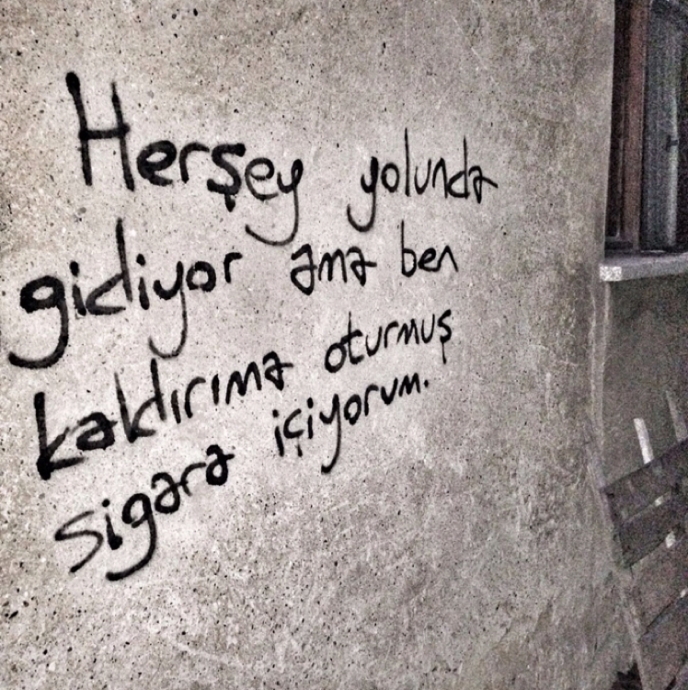 Herşey yolunda
gidiyor ama ben
kaldırıma oturmuş
sigara içiyorum.